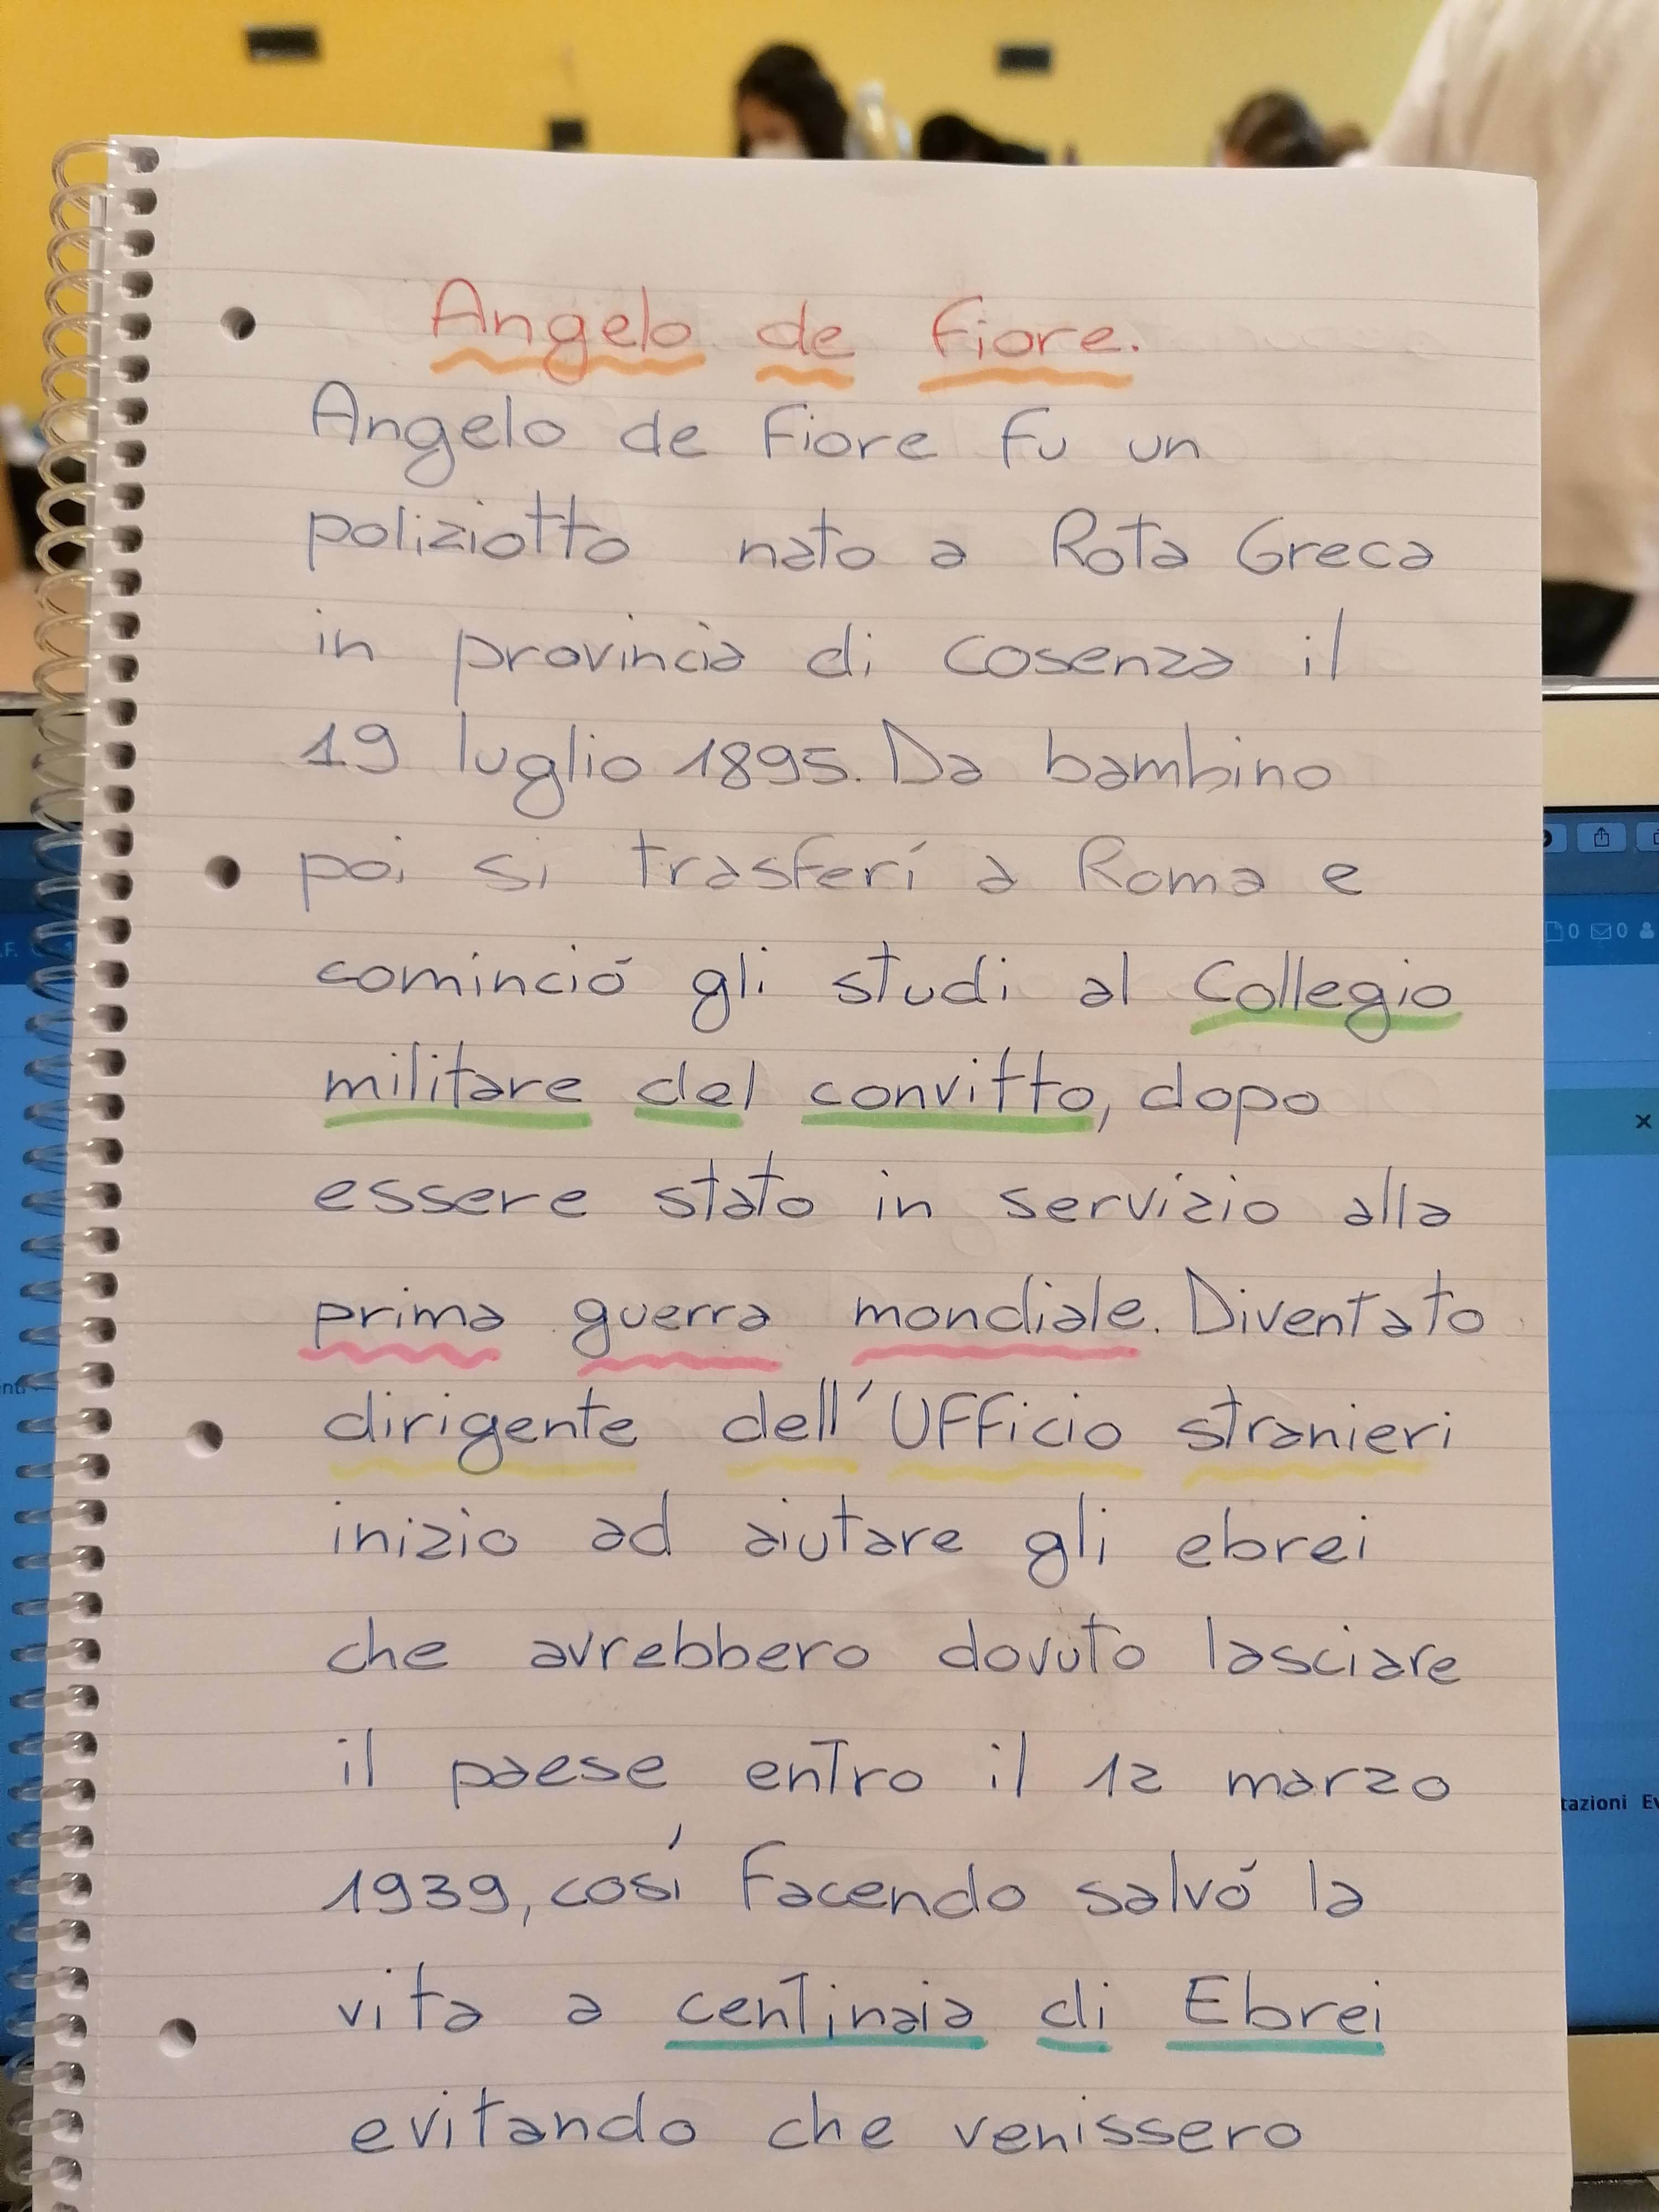 Angelo de Fiore.
Angelo de Fiore fu un
poliziotto nato a Rota Greca
in provincia di Cosenza il
19 luglio 1895. Da bambino
poi si trasferí a Roma e
cominció gli studi al Collegio
militare del convitto, dopo
essere stato in servizio alla
prima guerra mondiale. Diventato
dirigente dell'Ufficio stranieri
inizio ad aiutare gli ebrei
che avrebbero dovuto lasciare
il paese entro il 12 marzo
1939, cosí facendo salvó la
vita a centinaia di Ebrei
evitando che venissero
0 0
tazioni Ev